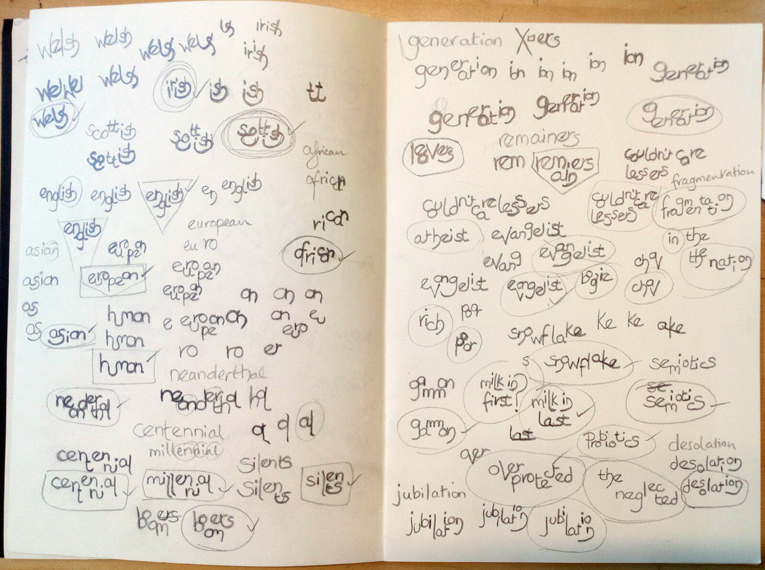 welsh welsh welsh welsh irish
irish
welsh welsh irish ish ish tt
welsh scottish scottish scottish
scottish african
english english english en english african
english european rican
asian european euro african
asian european european
european an an an
as human e european an eu
as asian human euro
human ro ro er
neanderthal
neanderthal neanderthal
centennial al
millennial
centennial silents
centennial millennial silents silents
boomers boomers
generation Xpers
generation ion ion ion ion ion generation
generation generation generation
remainers
leavers rem remainers couldn't care lessers
fragmentation
couldn't care lessers couldn't care lessers fragmentation
atheist evangelist in the
evang evangelist the nation
evangelist evangelist bogie chav
chav
rich poor
poor snowflake ke ke ake
s snowflake semiotics
gammon milk in first! semiotics
gammon milk in last
last probiotics desolation
over desolation
overprotected the neglected desolation
jubilation
jubilation jubilation jubilation